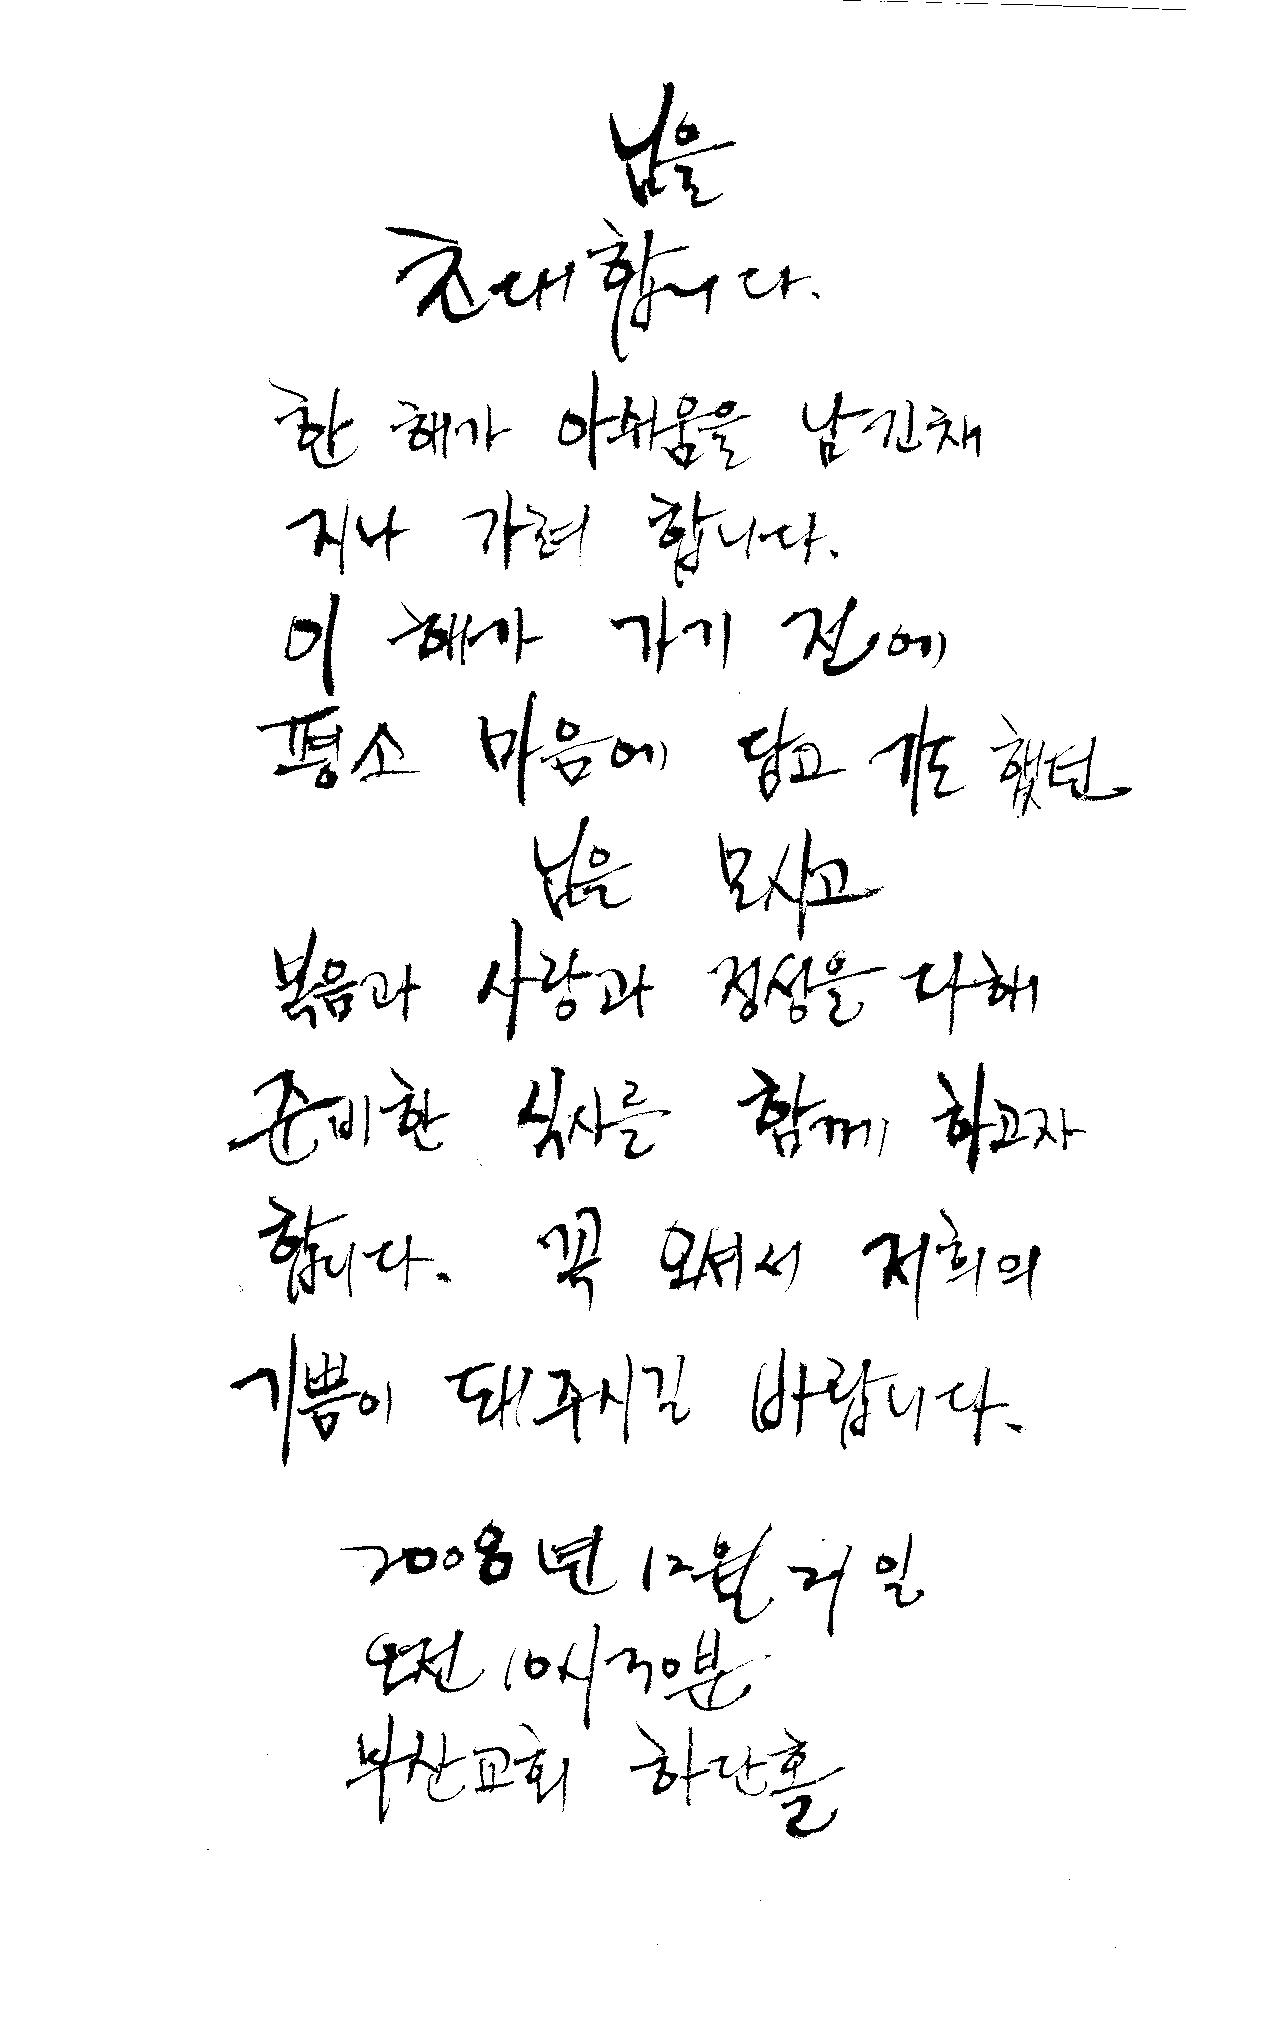 님을
초대합니다.
한 해가 아쉬움을 남긴채
지나 가려 합니다.
이 해가 가기 전에
평소 마음에 담고 기도했던
님을 모시고
복음과 사랑과 정성을 다해
준비한 식사를 함께 하고자
합니다. 꼭 오셔서 저희의
기쁨이 돼주시길 바랍니다.
2008년 12월 21일
오전 10시 30분
부산교회 하단홀